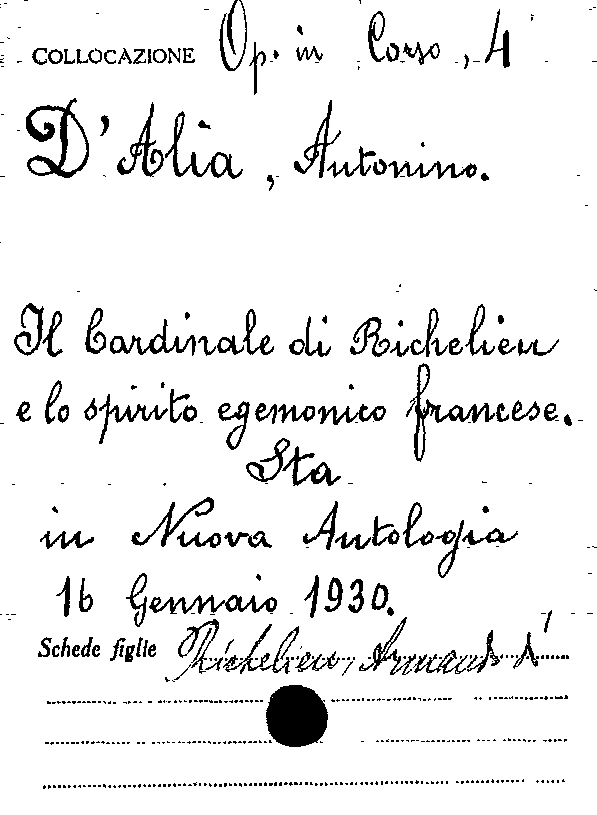 COLLOCAZIONE Op. in Corso, 4
D'Alia, Antonino.
Il Cardinale di Richelieu
e lo spirito egemonico francese.
Sta
in Nuova Antologia
16 Gennaio 1930.
Schede figlie Richelieu, Armand d'